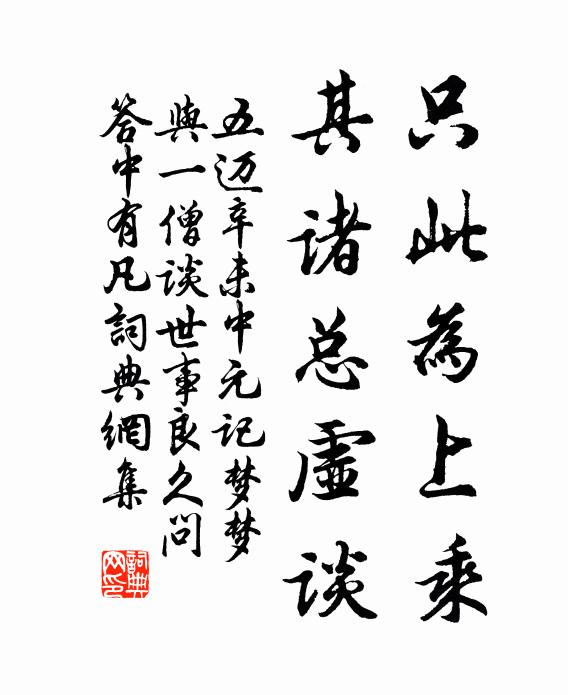 只此為上乘
其諸总虛谈
五迈辛未中元记梦梦
與一僧谈世事良久问
答中有凡詞典網集
詞典
网印